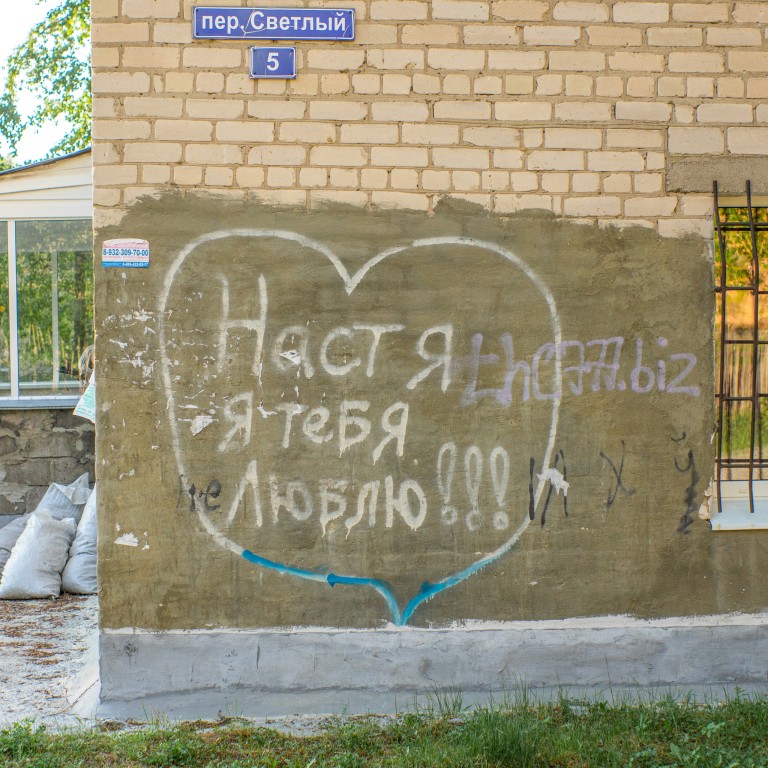 пер. Светлый
5
8-932-309-70-00
Настя
thc777.biz
я тебя
не Люблю!!!